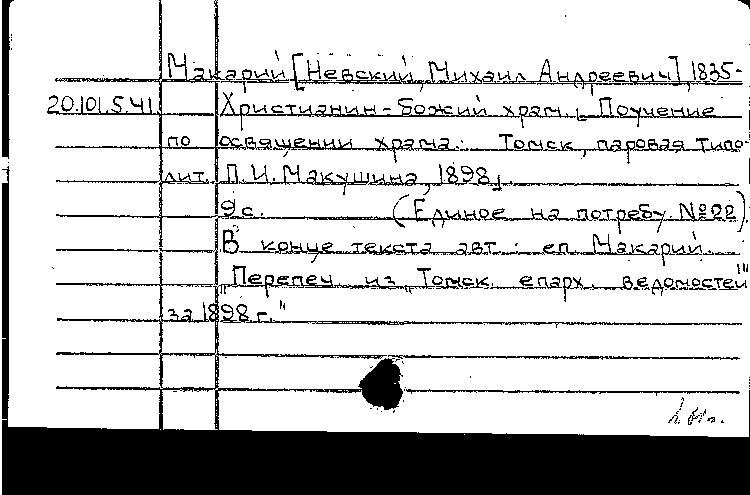 Макарий [Невский, Михаил Андреевич], 1835-
20.101.5.41 Христианин – Божий храм. Поучение
по освящении храма. Томск, паровая типо-
лит. П.И. Макушина, 1898.
9 с. (Единое на потребу. №22)
В конце текста авт.: еп. Макарий.
„Перепеч из „Томск. епарх. ведомостей"
за 1898 г."